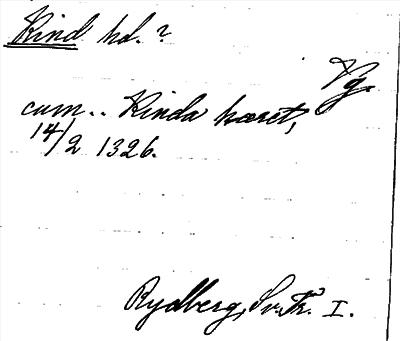 Kind hd. ?
Vg.
cum.. Kinda hæret,
14/2 1326.
Rydberg, Sv. Tr. I.